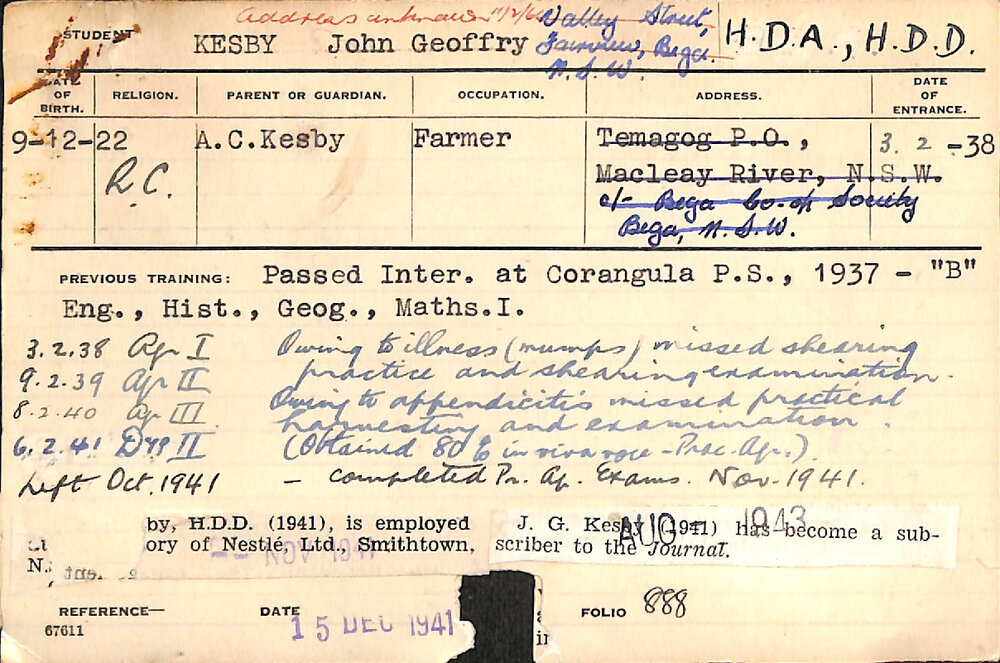 Address unknown
Valley Street,
Fairview, Bega.
N.S.W.
STUDENT KESBY John Geoffry H.D.A., H.D.D.
DATE OF BIRTH. RELIGION. PARENT OR GUARDIAN. OCCUPATION. ADDRESS. DATE OF ENTRANCE.
9-12-22 A.C.Kesby Farmer Temagog P.O., 3. 2 -38
R.C. Macleay River, N.S.W.
c/- Bega Co-op Society
Bega, N.S.W.
PREVIOUS TRAINING: Passed Inter. at Corangula P.S., 1937 - "B"
Eng., Hist., Geog., Maths.I.
3.2.38 Agr I Owing to illness (mumps) missed shearing
9.2.39 Agr II practice and shearing examination.
8.2.40 Agr III Owing to appendicitis missed practical
harvesting and examination.
6.2.41 Dyg II (Obtained 80% in viva voce - Prac. Agr.).
Left Oct. 1941 - completed Pr. Ag. Exams. Nov. 1941.
by, H.D.D. (1941), is employed
ory of Nestlé, Ltd., Smithtown,
N.
NOV 1941
J. G. Kesby (1941) has become a sub-
scriber to the Journal.
AUG - 1943
REFERENCE— DATE 15 DEC 1941 FOLIO 888
67611